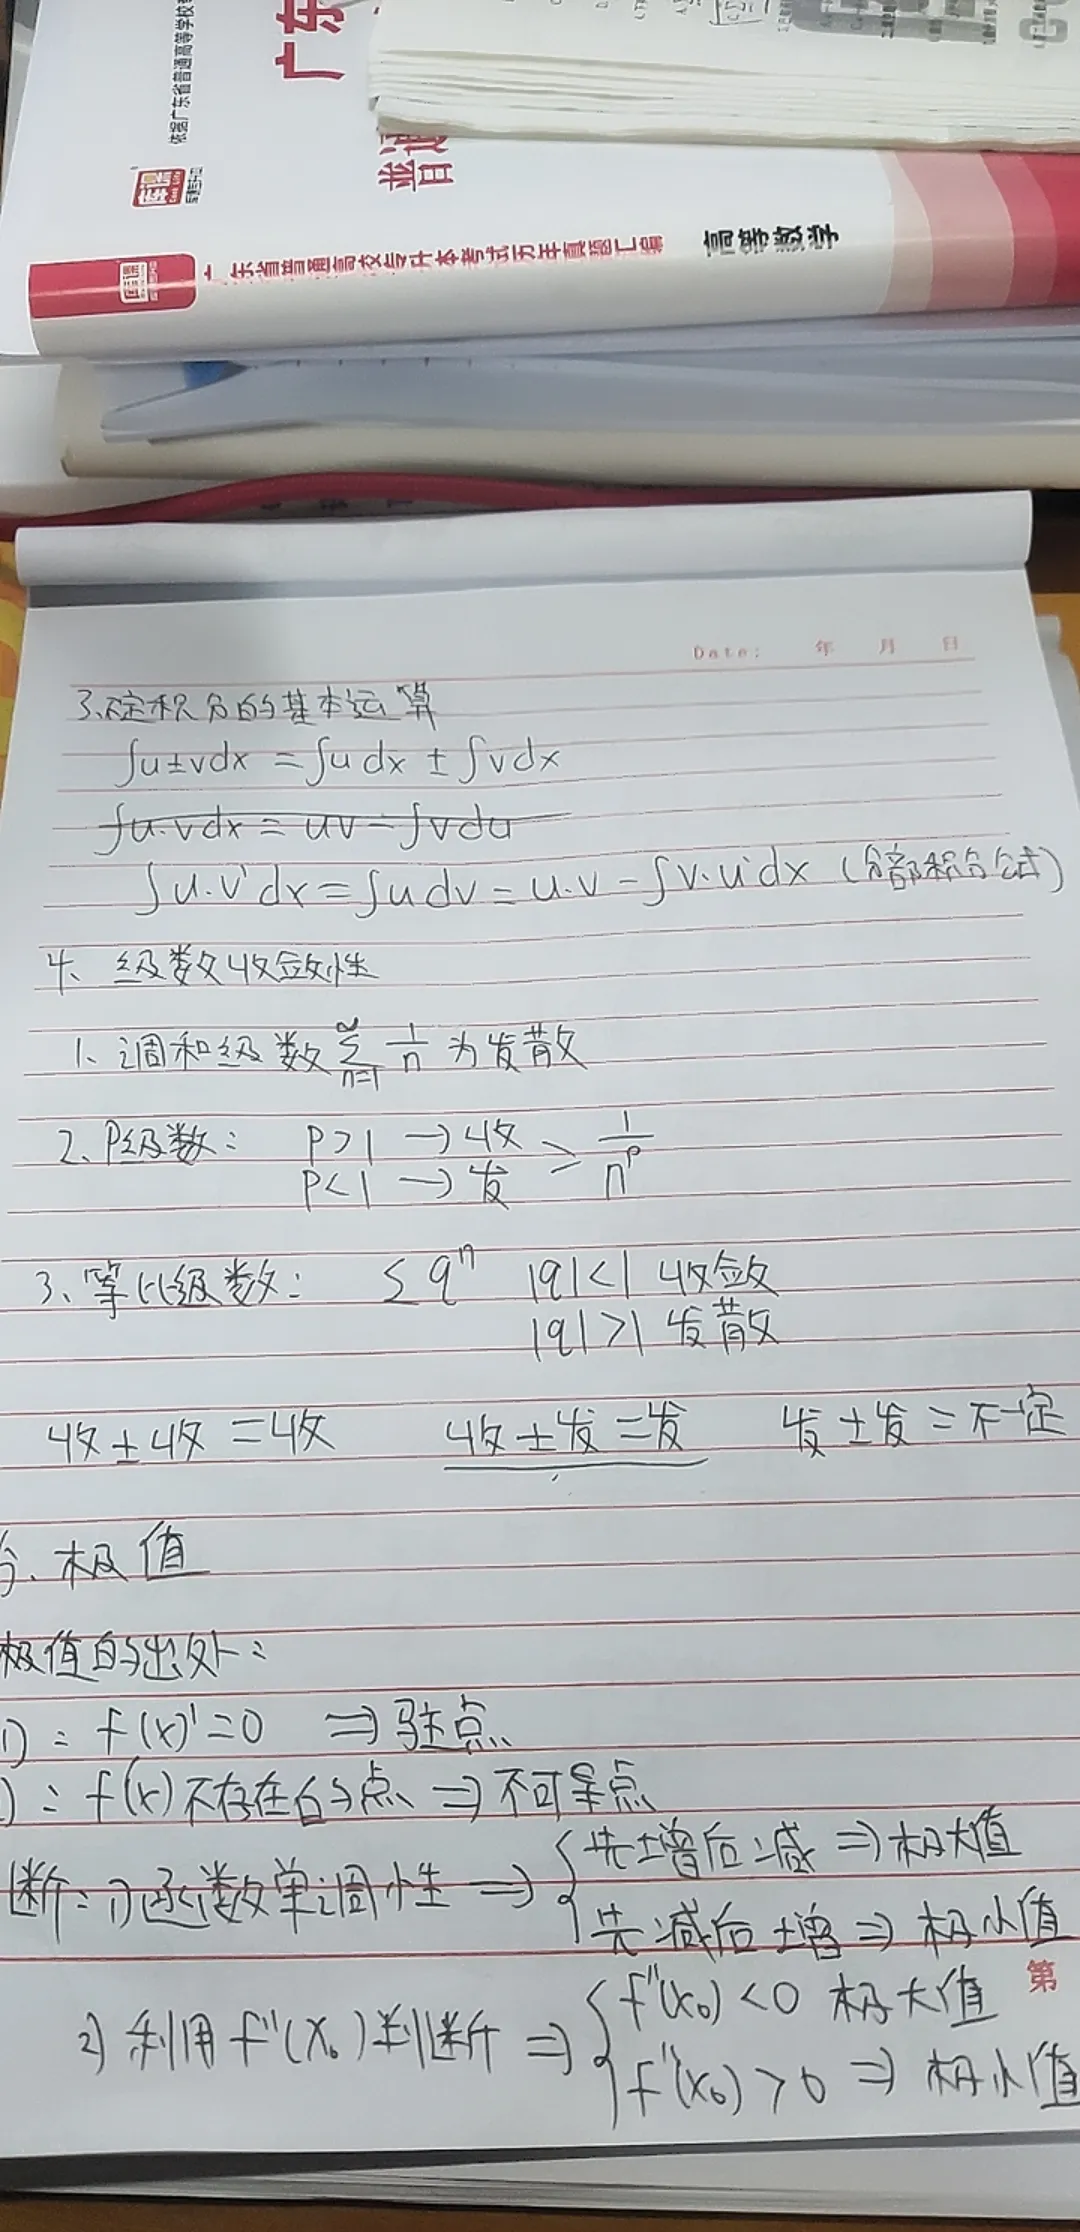 依据广东省普通高等学校
广东
普通
库课
广东省普通高校专升本考试历年真题汇编 高等数学
Date: 年 月 日
3、定积分的基本运算
∫u±vdx = ∫udx ± ∫vdx
∫u·vdx = uv - ∫vdu
∫u·v'dx = ∫udv = u·v - ∫v·u'dx (分部积分公式)
4、级数收敛性
1、调和级数 ∑_{n=1}^{∞} 1/n 为发散
2、P级数: P>1 → 收 ≥ 1/n^p
P<1 → 发
3、等比级数: ∑q^n |q|<1 收敛
|q|>1 发散
收±收=收 收±发=发 发±发=不一定
、极值
极值的出处:
1): f(x)'=0 ⇒ 驻点
): f(x)不存在的点 ⇒ 不可导点
断: 1)函数单调性 ⇒ { 先增后减 ⇒ 极大值
先减后增 ⇒ 极小值
第
2) 利用f''(x₀)判断 ⇒ { f''(x₀)<0 极大值
f''(x₀)>0 ⇒ 极小值